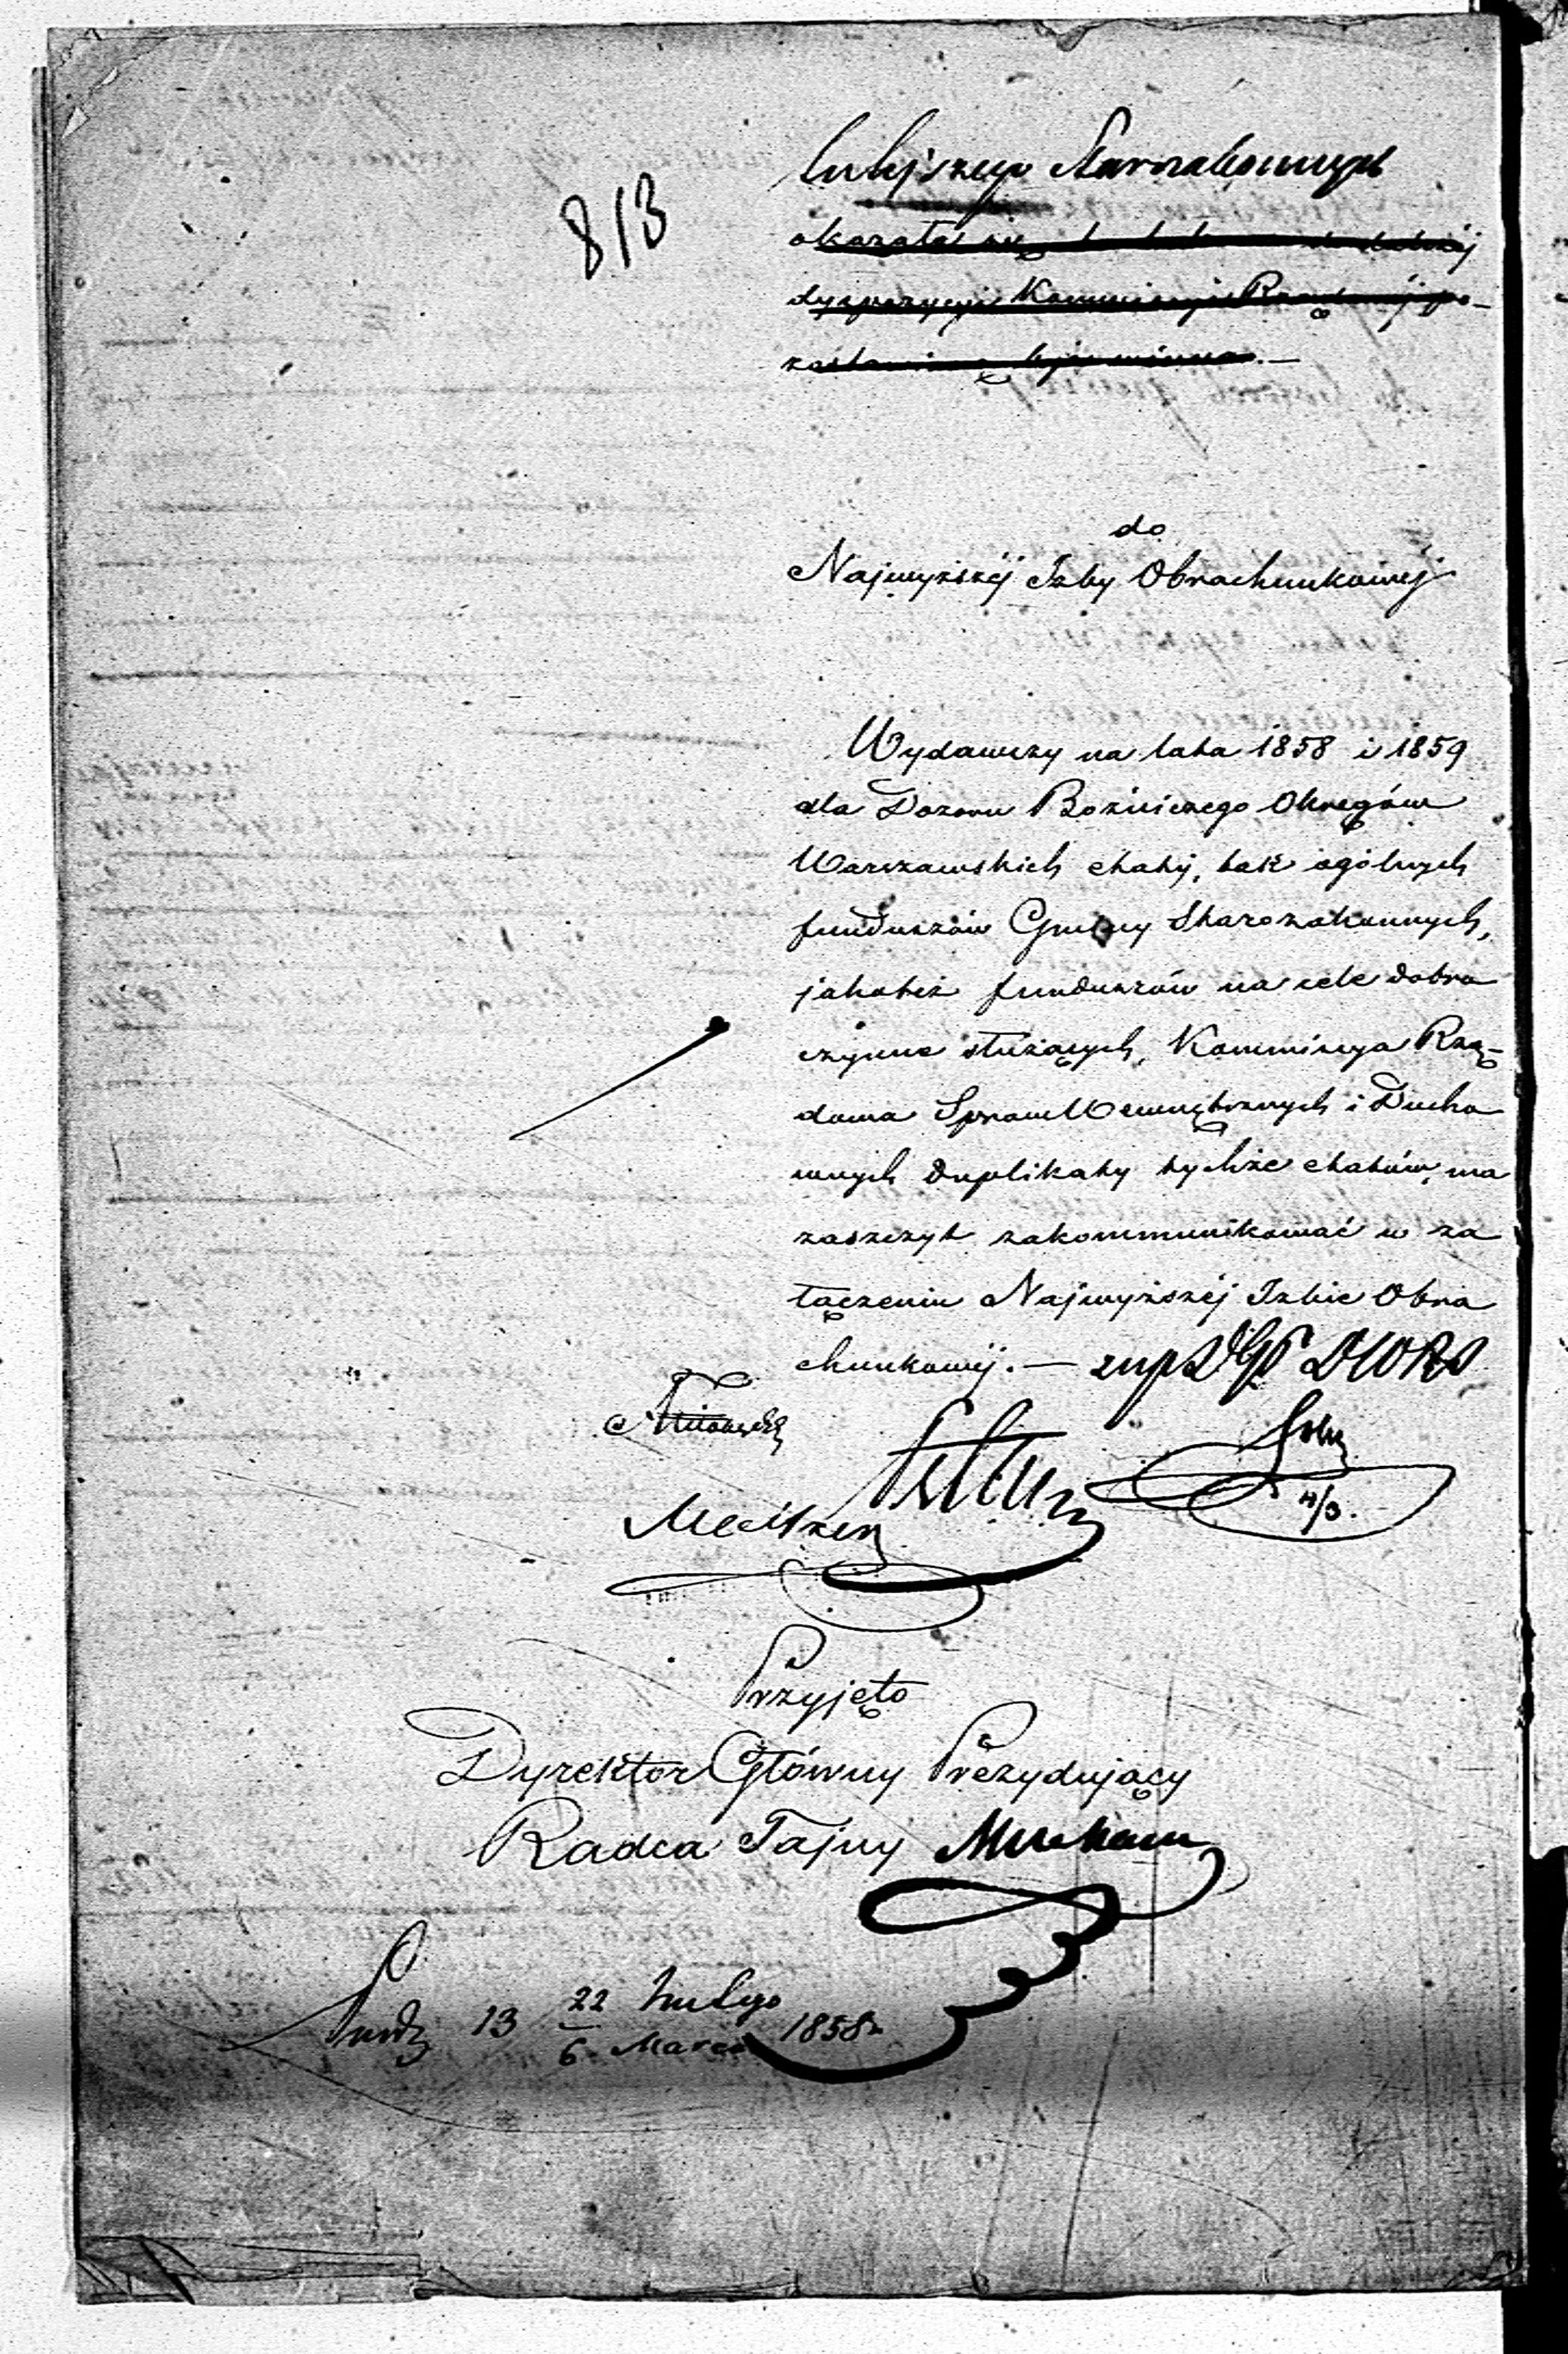 813
tutejszego Starozakonnych
okazała się
dyspozycyi Kommissyi Rządowéj po-
do
Najwyższéj Izby Obrachunkowéj
Wydawszy na lata 1858 i 1859
dla Dozoru Bożniczego Okręgów
Warszawskich etaty, tak ogólnych
funduszów Gminy Starozakonnych,
jakoteż funduszów na cele dobro
czynne służących, Kommissya Rzą-
dowa Spraw Wewnętrznych i Ducho
wnych duplikaty tychże etatów, ma
zaszczyt zakommunikować w za
łączeniu Najwyższéj Izbie Obra
chunkowéj. —
4/3.
Przyjęto
Dyrektor Główny Prezydujący
Radca Tajny Muchanow
13 22 Lutego
6 Marca 1858 r.